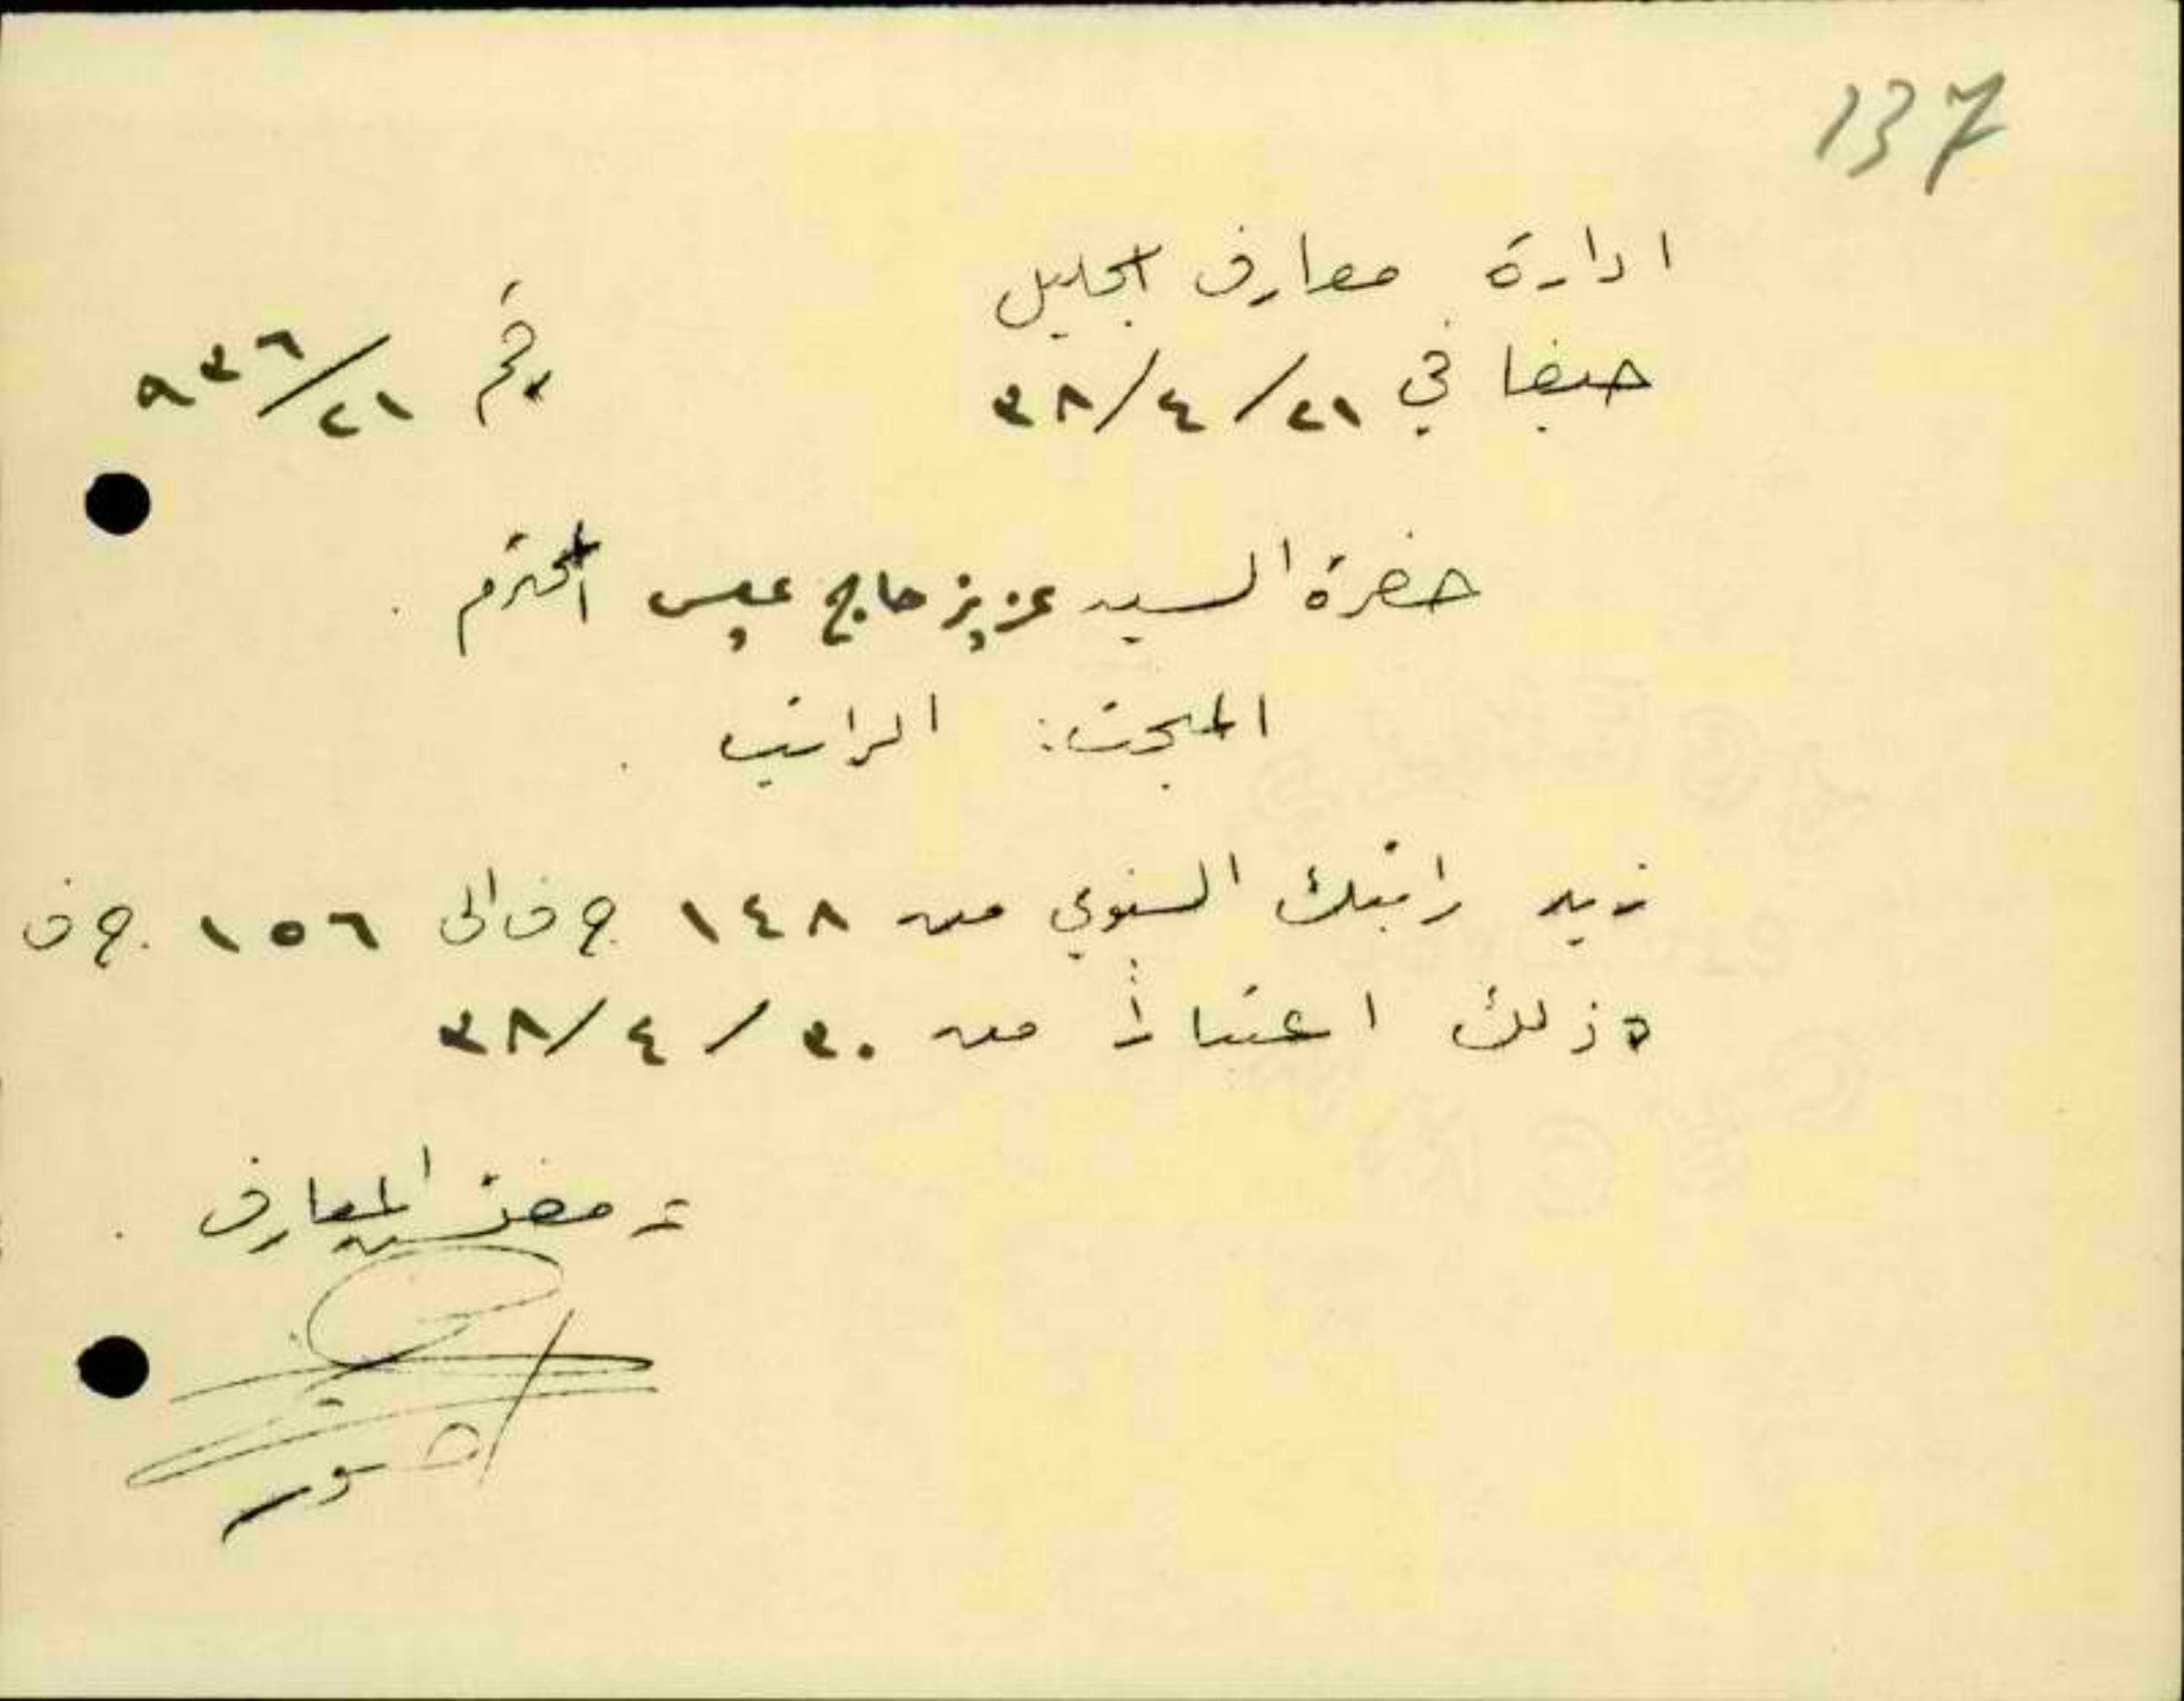 137
ادارة معارف الجليل
حيفا في ٢١/٤/٣٨
رقم ٩٣٦/٢١
حضرة السيد عزيز حاج عيسى المحترم.
المبحث: الراتب.
زيد راتبك السنوي من ١٤٨ ج ف الى ١٥٦ ج ف
وذلك اعتبارا من ٣٠/٤/٣٨
مفتش المعارف.